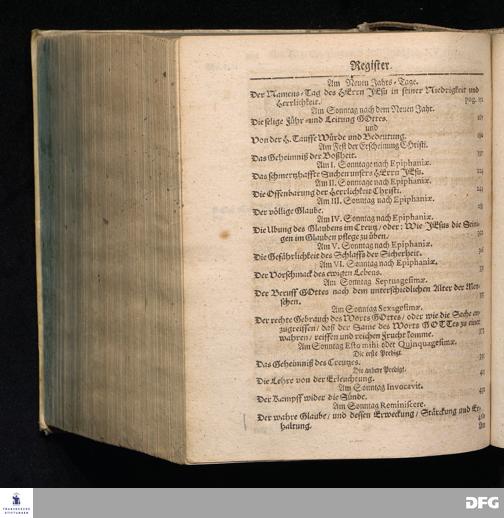 Register.
Am Neuen Jahrs-Tage.
Der Namens-Tag des HErrn JEsu in seiner Niedrigkeit und
Herrlichkeit. pag.
Am Sonntag nach dem Neuen Jahr.
Die selige Führ- und Leitung GOttes.
und
Von der H. Tauffe Würde und Bedeutung.
Am Fest der Erscheinung Christi.
Das Geheimniß der Boßheit.
Am I. Sonntage nach Epiphaniæ.
Das schmertzhaffte Suchen unsers HErrn JEsu.
Am II. Sonntage nach Epiphaniæ.
Die Offenbarung der Herrlichkeit Christi.
Am III. Sonntag nach Epiphaniæ.
Der völlige Glaube.
Am IV. Sonntag nach Epiphaniæ.
Die Ubung des Glaubens im Creutz/ oder: Wie JEsus die Sei-
gen im Glauben pflege zu üben.
Am V. Sonntag nach Epiphaniæ.
Die Gefährlichkeit des Schlaffs der Sicherheit.
Am VI. Sonntag nach Epiphaniæ.
Der Vorschmack des ewigen Lebens.
Am Sonntag Septuagesimæ.
Der Beruff GOttes nach dem unterschiedlichen Alter der Men-
schen.
Am Sonntag Sexagesimæ.
Der rechte Gebrauch des Worts GOttes/ oder wie die Sache an-
zugreiffen/ daß der Same des Worts GOTTes zu einer
wahren/ reiffen und reichen Frucht komme.
Am Sonntag Esto mihi oder Quinquagesimæ.
Die erste Predigt.
Das Geheimniß des Creutzes.
Die andere Predigt.
Die Lehre von der Erleuchtung.
Am Sonntag Invocavit.
Der Kampff wider die Sünde.
Am Sonntag Reminiscere.
Der wahre Glaube/ und dessen Erweckung/ Stärckung und Er-
haltung.
FRANCKESCHE
STIFTUNGEN
DFG